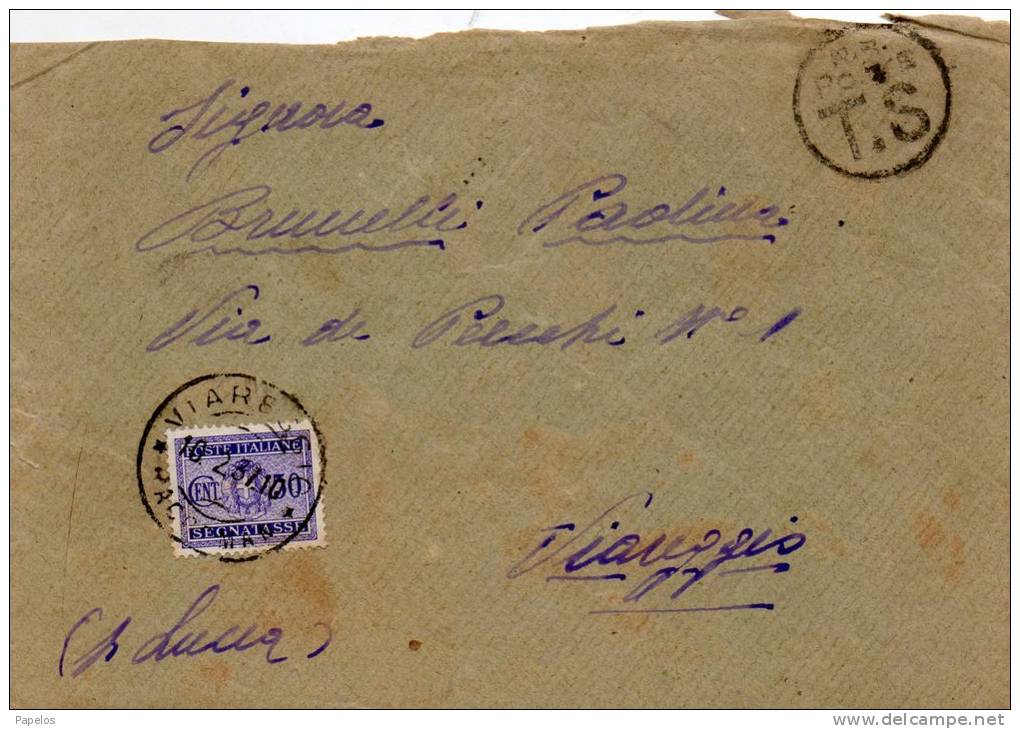 T.S
Signora
Brunelli Paolina
Via de Pecchi N° 1
VIAREGGIO
POSTE ITALIANE
CENT. 30
SEGNATASSE
Viareggio
(p Lucca)
Papelos
www.delcampe.net